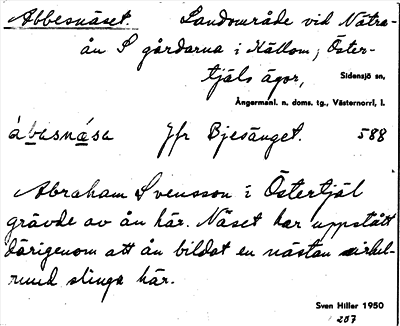 Abbesnäset. Landområde vid Nätra-
ån S gårdarna i Källom, Öster-
tjäls ägor, Sidensjö sn,
Ångermanl. n. doms. tg., Västernorrl, l.
ábasnása Jfr Bjesänget. 588
Abraham Svensson i Östertjäl
grävde av ån här. Näset har uppstått
därigenom att ån bildat en nästan cirkel-
rund slinga här.
Sven Hiller 1950
207